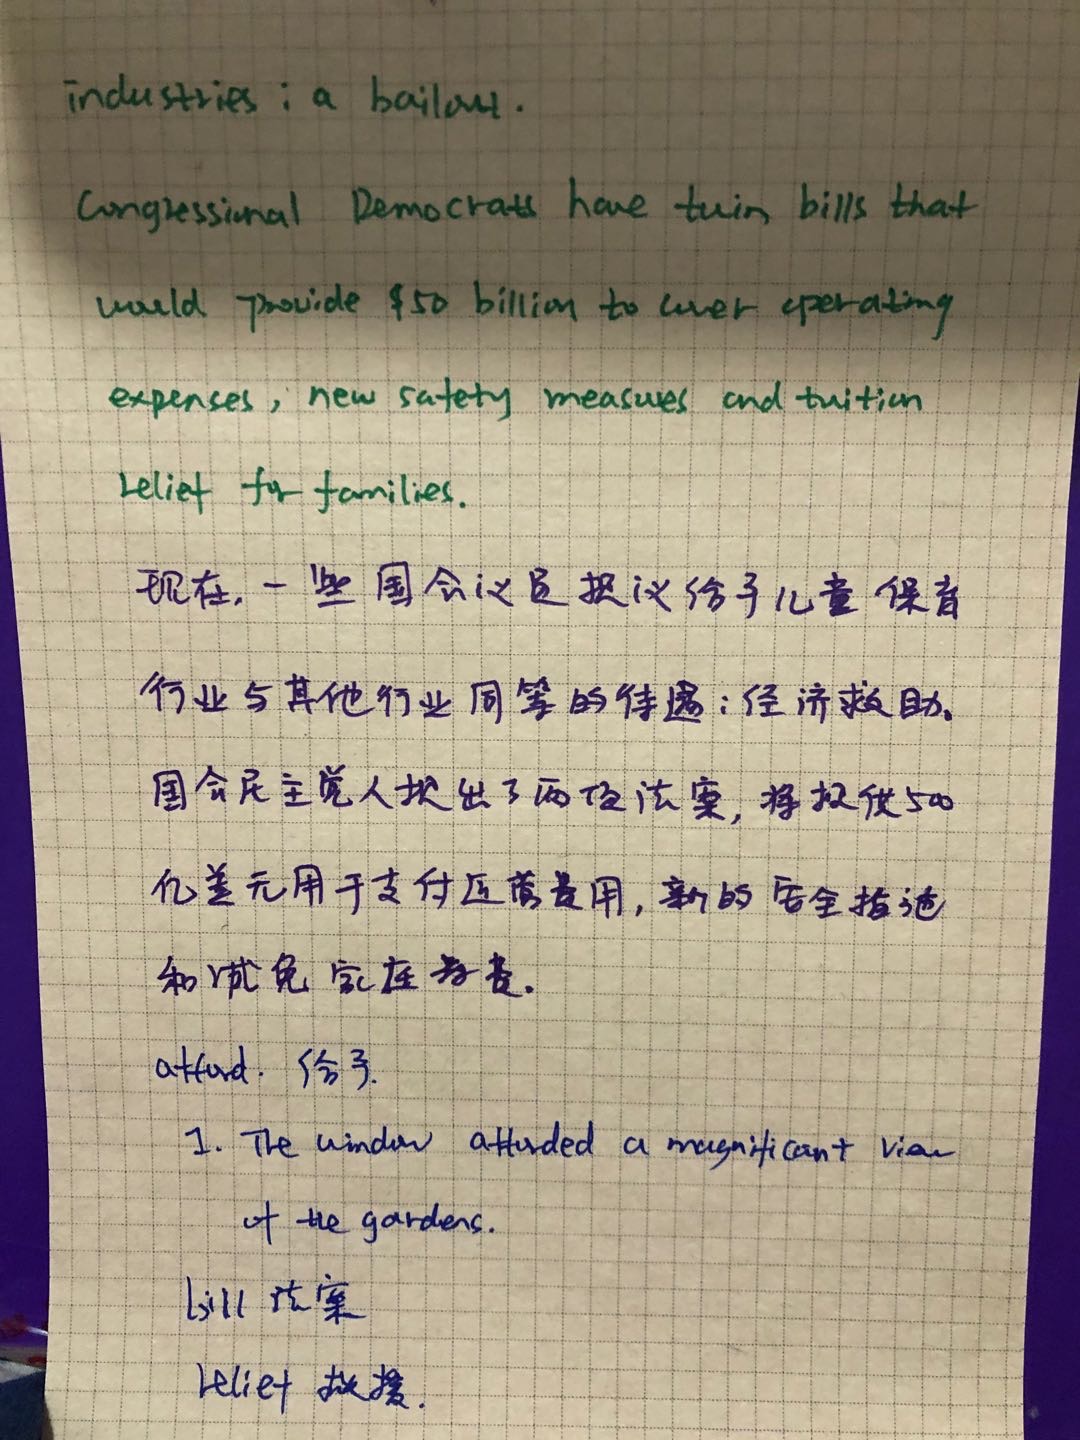 industries : a bailout.
Congressional Democrats have twin bills that
would provide $50 billion to cover operating
expenses, new safety measures and tuition
relief for families.
现在,一些国会议员提议给予儿童保育
行业与其他行业同等的待遇:经济救助。
国会民主党人提出了两项法案,将提供500
亿美元用于支付运营费用,新的安全措施
和减免家庭学费.
afford. 给予.
1. The window afforded a magnificant view
of the gardens.
bill 法案
relief 救援.